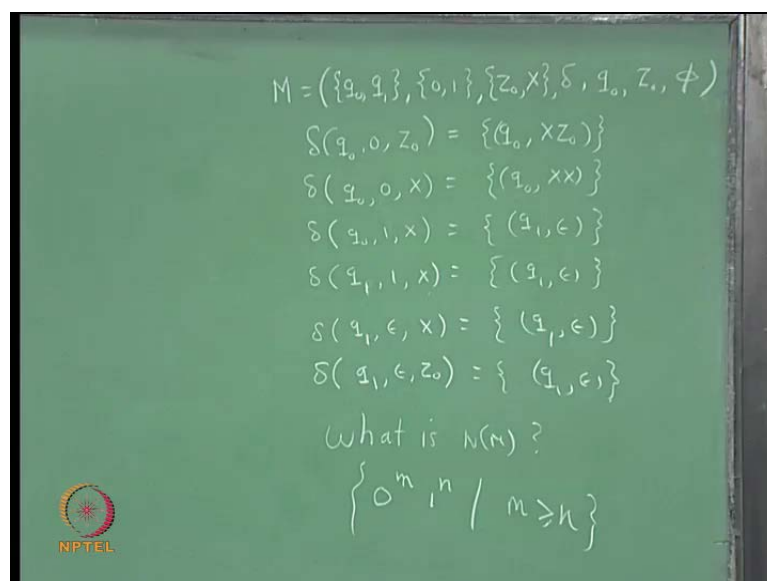 M = ({q₀, q₁}, {0, 1}, {Z₀, X}, δ, q₀, Z₀, ϕ)
δ(q₀, 0, Z₀) = {(q₀, XZ₀)}
δ(q₀, 0, X) = {(q₀, XX)}
δ(q₀, 1, X) = {(q₁, ϵ)}
δ(q₁, 1, X) = {(q₁, ϵ)}
δ(q₁, ϵ, X) = {(q₁, ϵ)}
δ(q₁, ϵ, Z₀) = {(q₁, ϵ)}
What is N(M) ?
{0ᵐ 1ⁿ / m ≥ n}
NPTEL